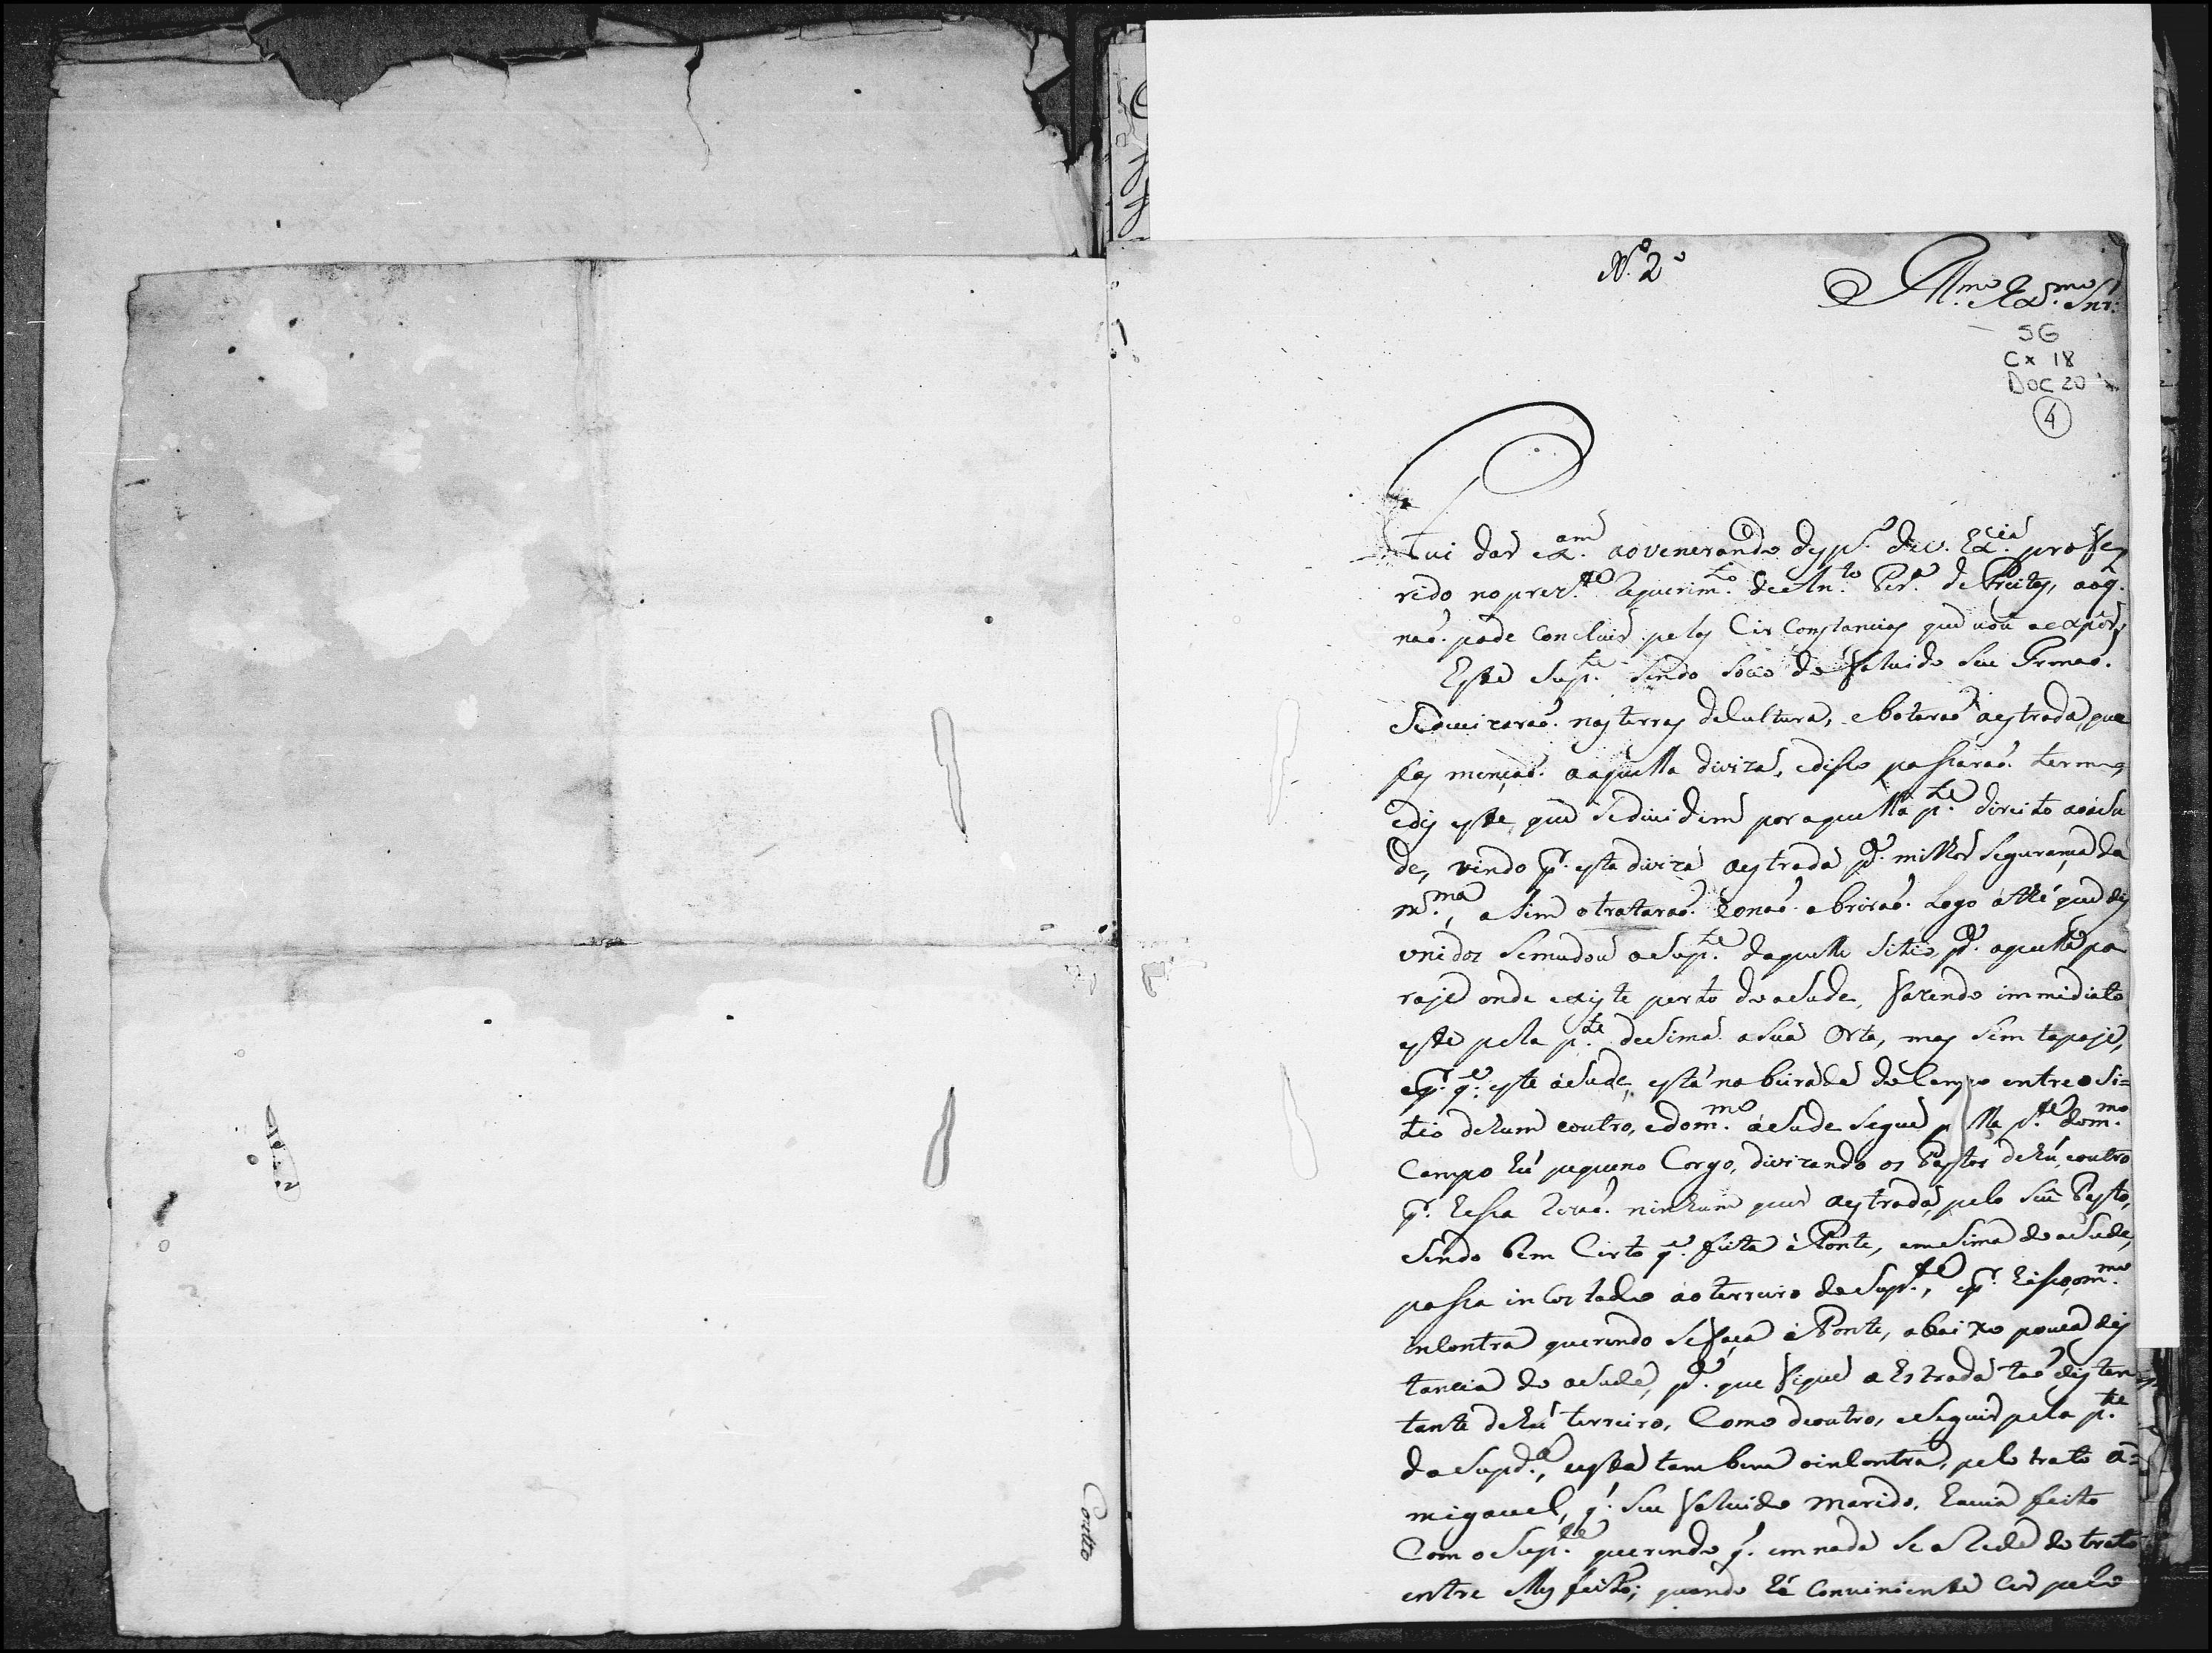 N.º 2º
Ill.mo Ex.mo Snr.
SG
Cx 18
Doc 20
4
Fui dar ex.am ao venerando desp.º de V. Ex.cia profe
rido no prez.te Requerim.to de An.to Per.ª de Freitas, aoq.
naõ pode concluir pelas Circonstancias que vou a expôr,
Este Sup.te sendo socio do faluido seu Irmaõ.
Se divizaraõ nas terras de Cultura, e botaraõ a estrada, que
faz mençaõ aaquella diviza, e disto passaraõ termo,
e diz este, que se dividem por aquella p.te direito ao asu
de, vindo p.r esta diviza a estrada p.ª milhor segurança da
m.ma, asim o trataraõ, e o naõ abriraõ Logo athé que des
unidos se mudou o Sup.te daquelle Sitio p.ª aquella pa
raje onde existe perto do asude, fazendo immidiato
este pela p.te desima a sua Orta, mas sem tapaje,
e p.r q.e este asude, está na beirada do Campo entre o Si=
tio de hum e outro, e do m.mo asude segue p lla p.te do m.mo
Campo hú pequeno Corgo, divizando os Pastos de hú, e outro
p.r hessa rezaõ ninhum quer a estrada, pelo seu Pasto,
sendo bem Certo q.e feita a Ponte, em sima do asude,
passa incostado ao terreiro do Sup.te, e p.r hisso, o m.mo
incontra querendo se faça a Ponte, abaixo pouca dis
tancia do asude, p.ª que fique a Estrada taõ distan
tante de hú terreiro, Como de outro, e seguir pela p.te
da Supd.ª, e esta tambem o incontra, pelo trato a=
migavel, q.e seu faluido marido, havia feito
Com o Sup.te querendo q.e em nada se a rede do trato
entre elles feito; quando hé conviniente ser pelo
Couto